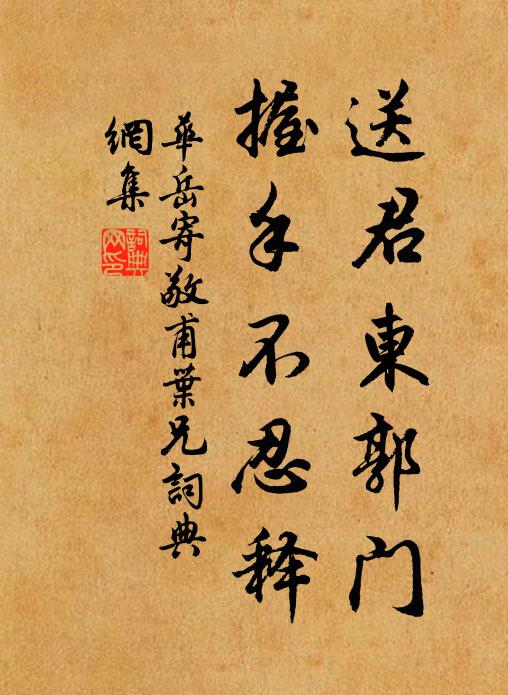 送君東郭门
握手不忍释
華岳寄敬甫葉兄詞典
網集
詞典網印